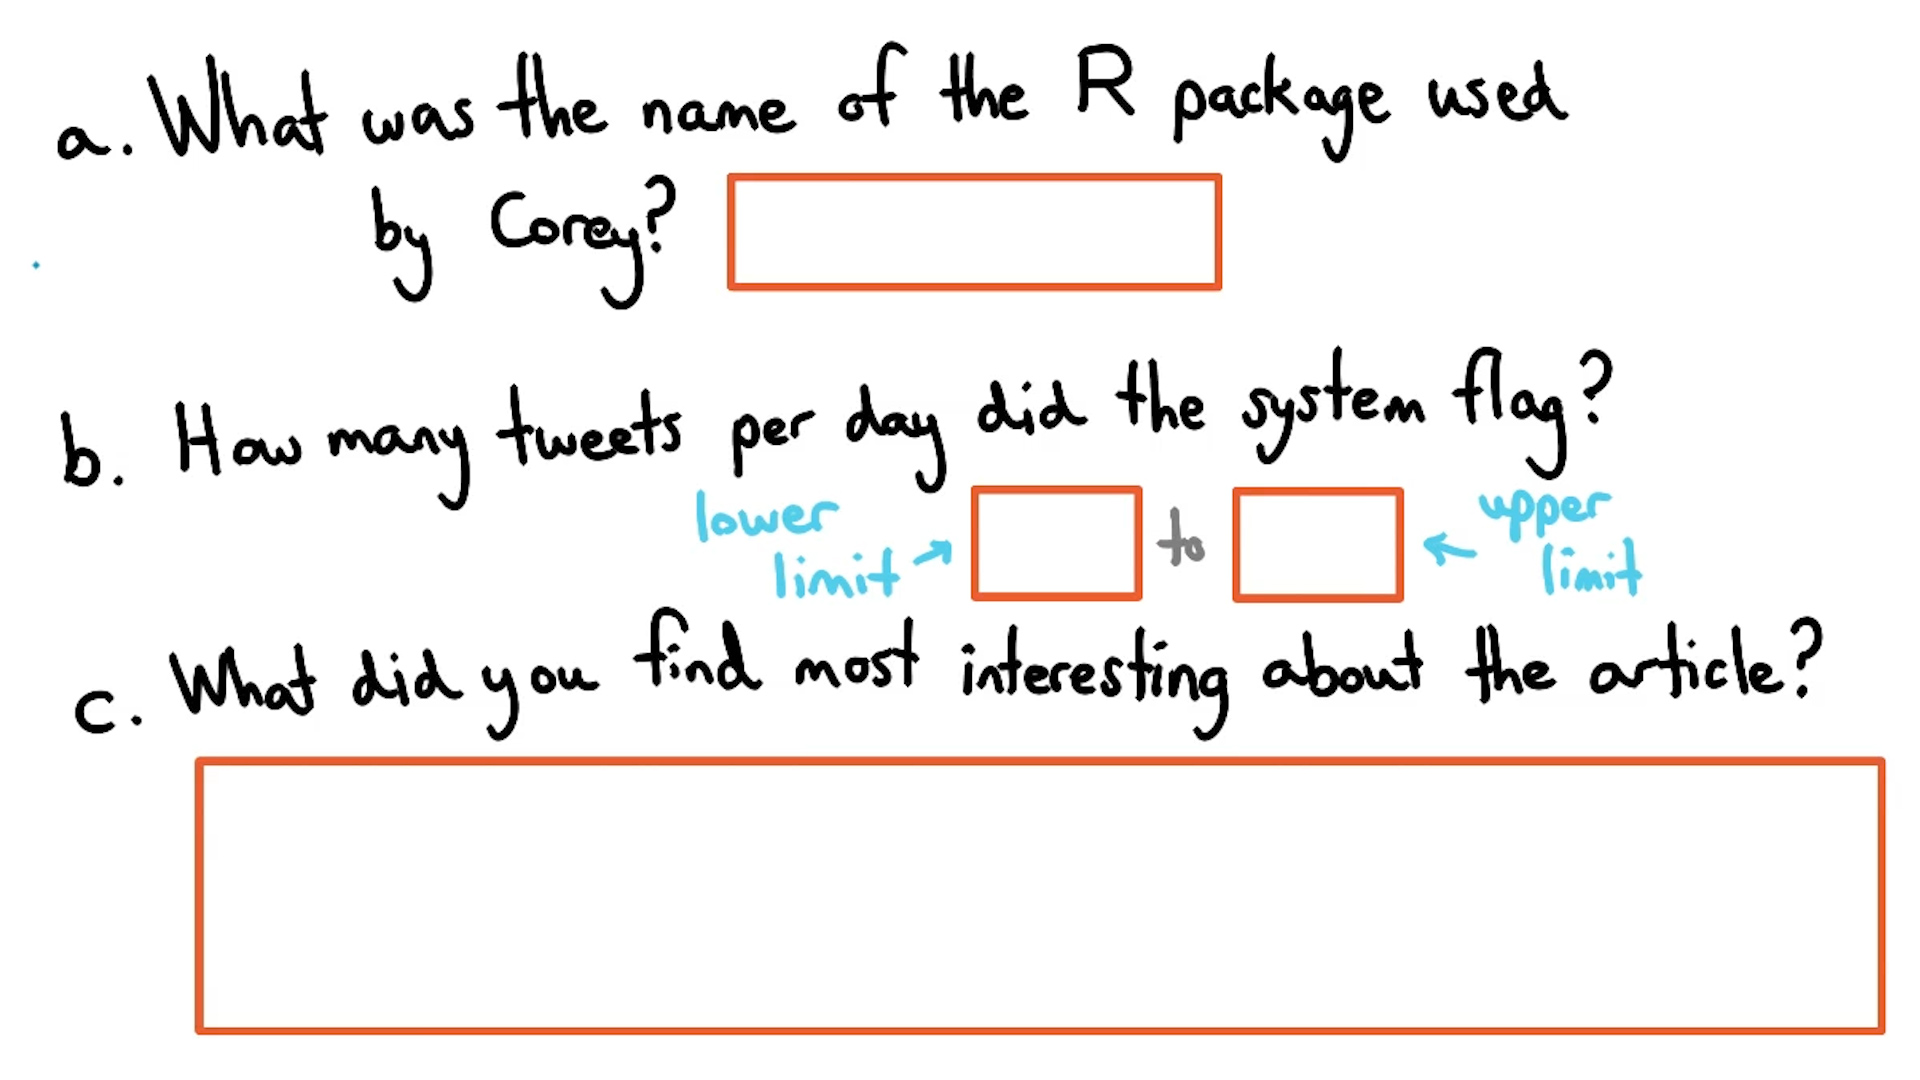 a. What was the name of the R package used
by Corey?
b. How many tweets per day did the system flag?
lower
limit
to
upper
limit
c. What did you find most interesting about the article?